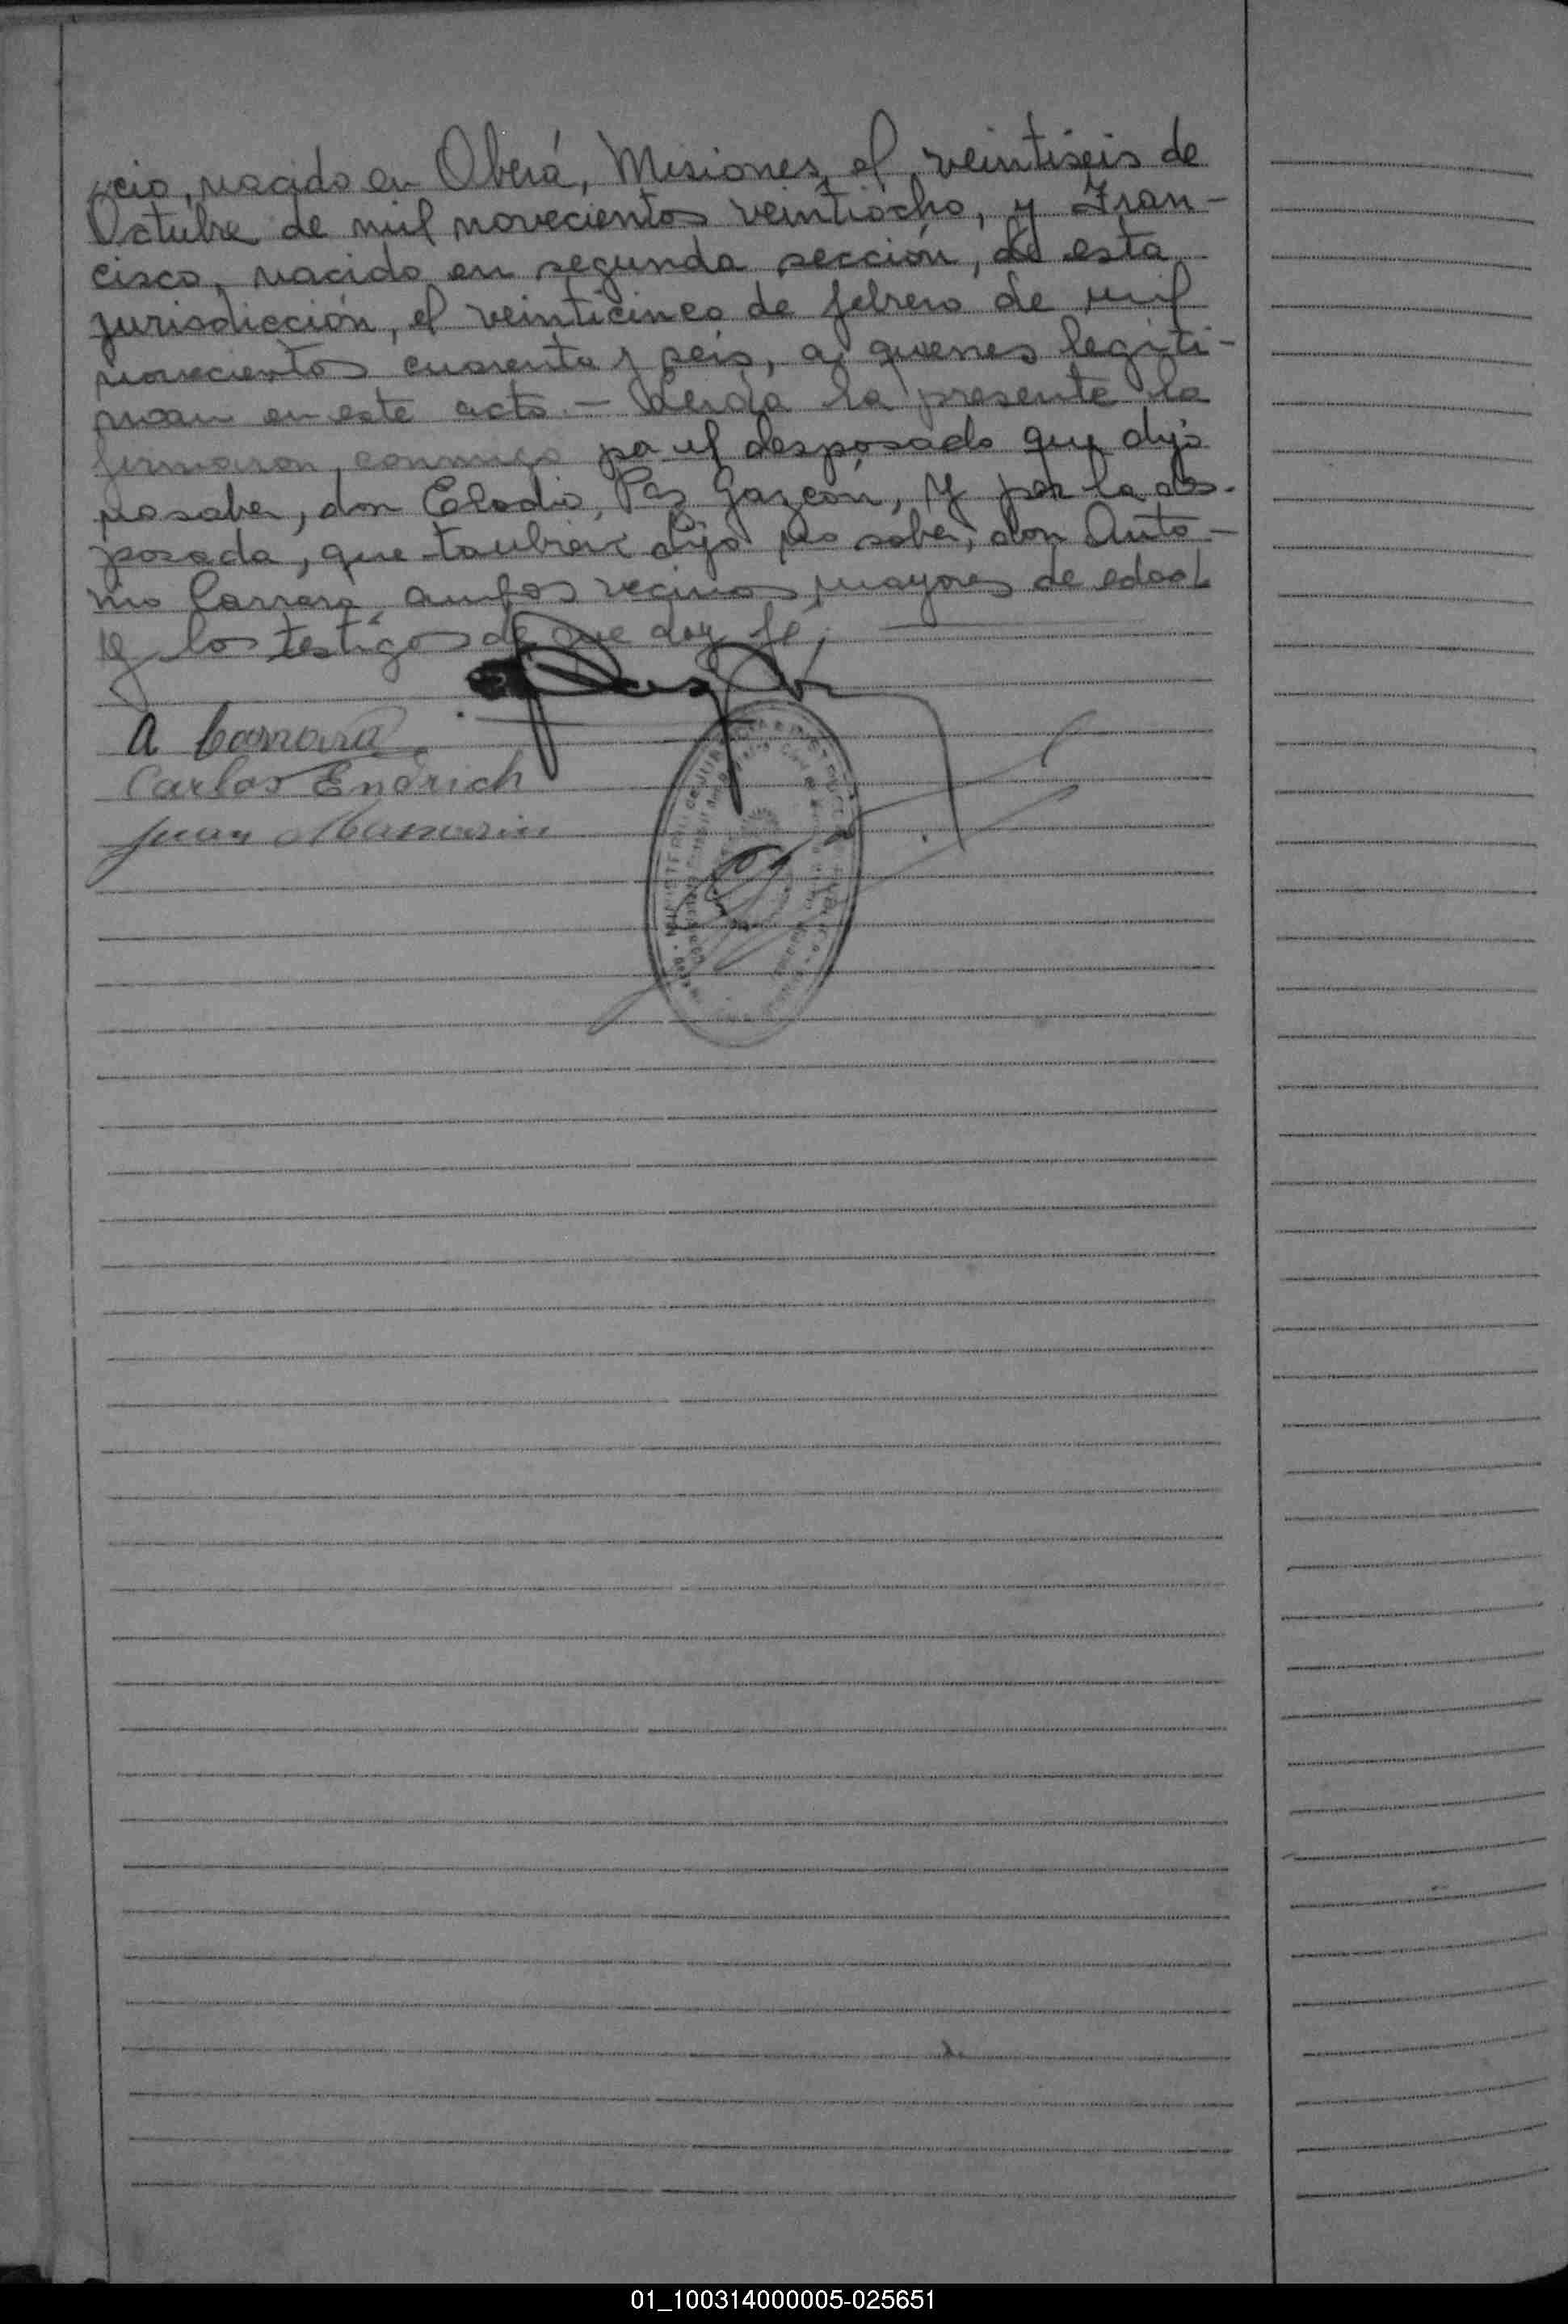 cio, nacido en Oberá, Misiones, el veintiseis de
Octubre de mil novecientos veintiocho, y Fran-
cisco, nacido en segunda sección, de esta
jurisdicción, el veinticinco de febrero de mil
novecientos cuarenta y seis, a quienes legiti-
man en este acto.- Leida la presente la
firmaron, conmigo por el desposado que dijo
no saber, don Elodio, Paz Gazcón, y por la des-
posada, que tambien dijo no saber, don Anto-
nio Carrera, ambos vecinos mayores de edad
y los testigos de que doy fe;
A
Carlos Endrich
Juan
01_100314000005-025651